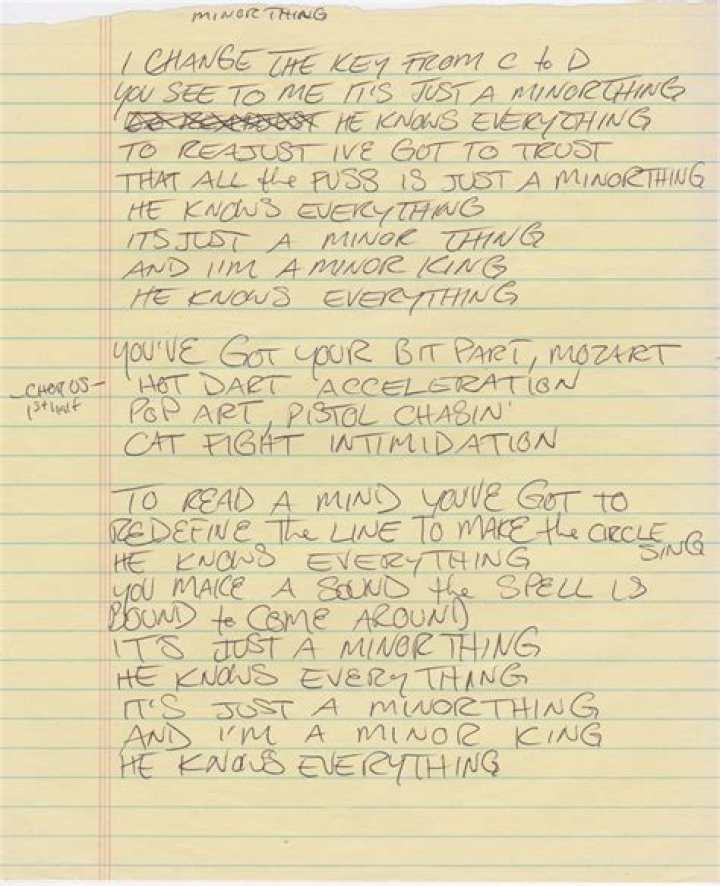 MINOR THING
I CHANGE THE KEY FROM C to D
YOU SEE TO ME IT'S JUST A MINOR THING
HE KNOWS EVERYTHING
TO REAJUST IVE GOT TO TRUST
THAT ALL the FUSS IS JUST A MINOR THING
HE KNOWS EVERYTHING
ITS JUST A MINOR THING
AND I'M A MINOR KING
HE KNOWS EVERYTHING
YOU'VE GOT YOUR BIT PART, MOZART
-CHORUS-
1st half
HOT DART ACCELERATION
POP ART, PISTOL CHASIN'
CAT FIGHT INTIMIDATION
TO READ A MIND YOU'VE GOT TO
REDEFINE the LINE TO MAKE the CIRCLE
SING
HE KNOWS EVERYTHING
YOU MAKE A SOUND the SPELL IS
BOUND to COME AROUND
IT'S JUST A MINOR THING
HE KNOWS EVERYTHING
IT'S JUST A MINOR THING
AND I'M A MINOR KING
HE KNOWS EVERYTHING